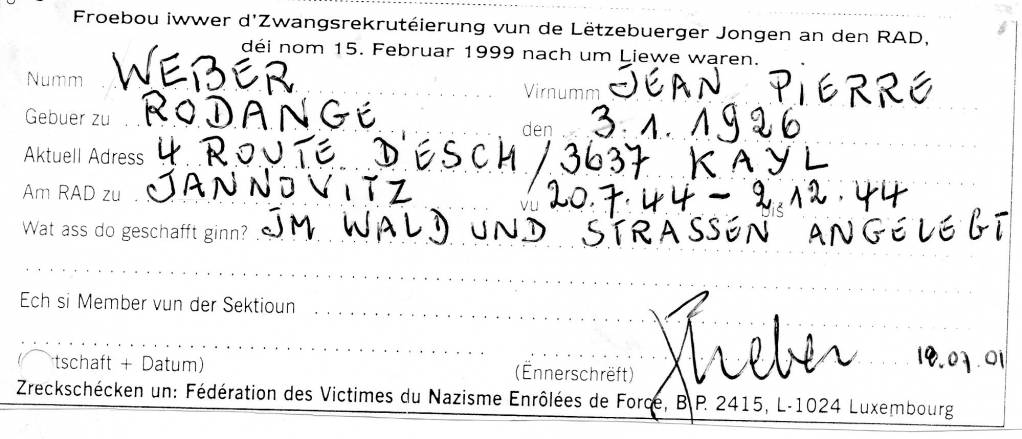 Froebou iwwer d'Zwangsrekrutéierung vun de Lëtzebuerger Jongen an den RAD,
déi nom 15. Februar 1999 nach um Liewe waren.
Numm WEBER Virnumm JEAN PIERRE
Gebuer zu RODANGE, den 3.1.1926
Aktuell Adress 4 ROUTE D'ESCH / 3637 KAYL
Am RAD zu JANNOVITZ vu 20.7.44 - bis 2.12.44
Wat ass do geschafft ginn? JM WALD UND STRASSEN ANGELEGT
Ech si Member vun der Sektioun
Weber 18.07.01
(tschaft + Datum) (Ennerschrëft)
Zreckschécken un: Fédération des Victimes du Nazisme Enrôlées de Force, B.P. 2415, L-1024 Luxembourg